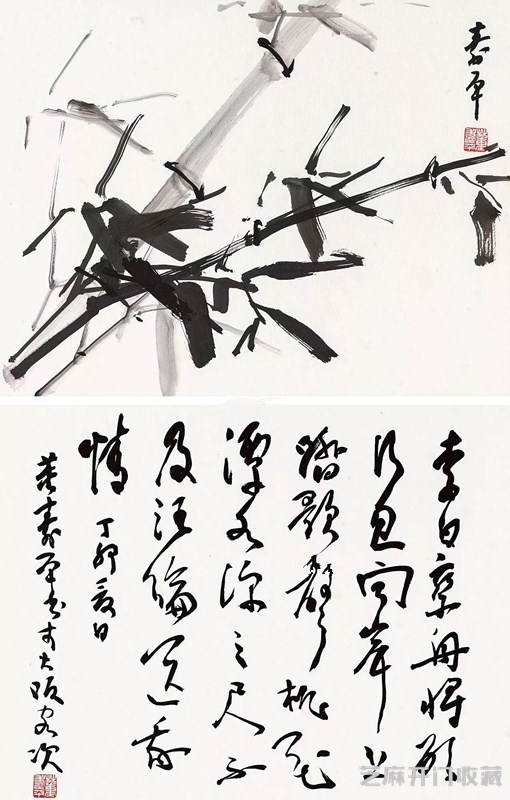 壽平
李白乘舟將欲
行忽聞岸上
踏歌聲桃花
潭水深千尺不
及汪倫送我
情
丁卯夏日
董壽平書于大阪客次
芝麻开门收藏